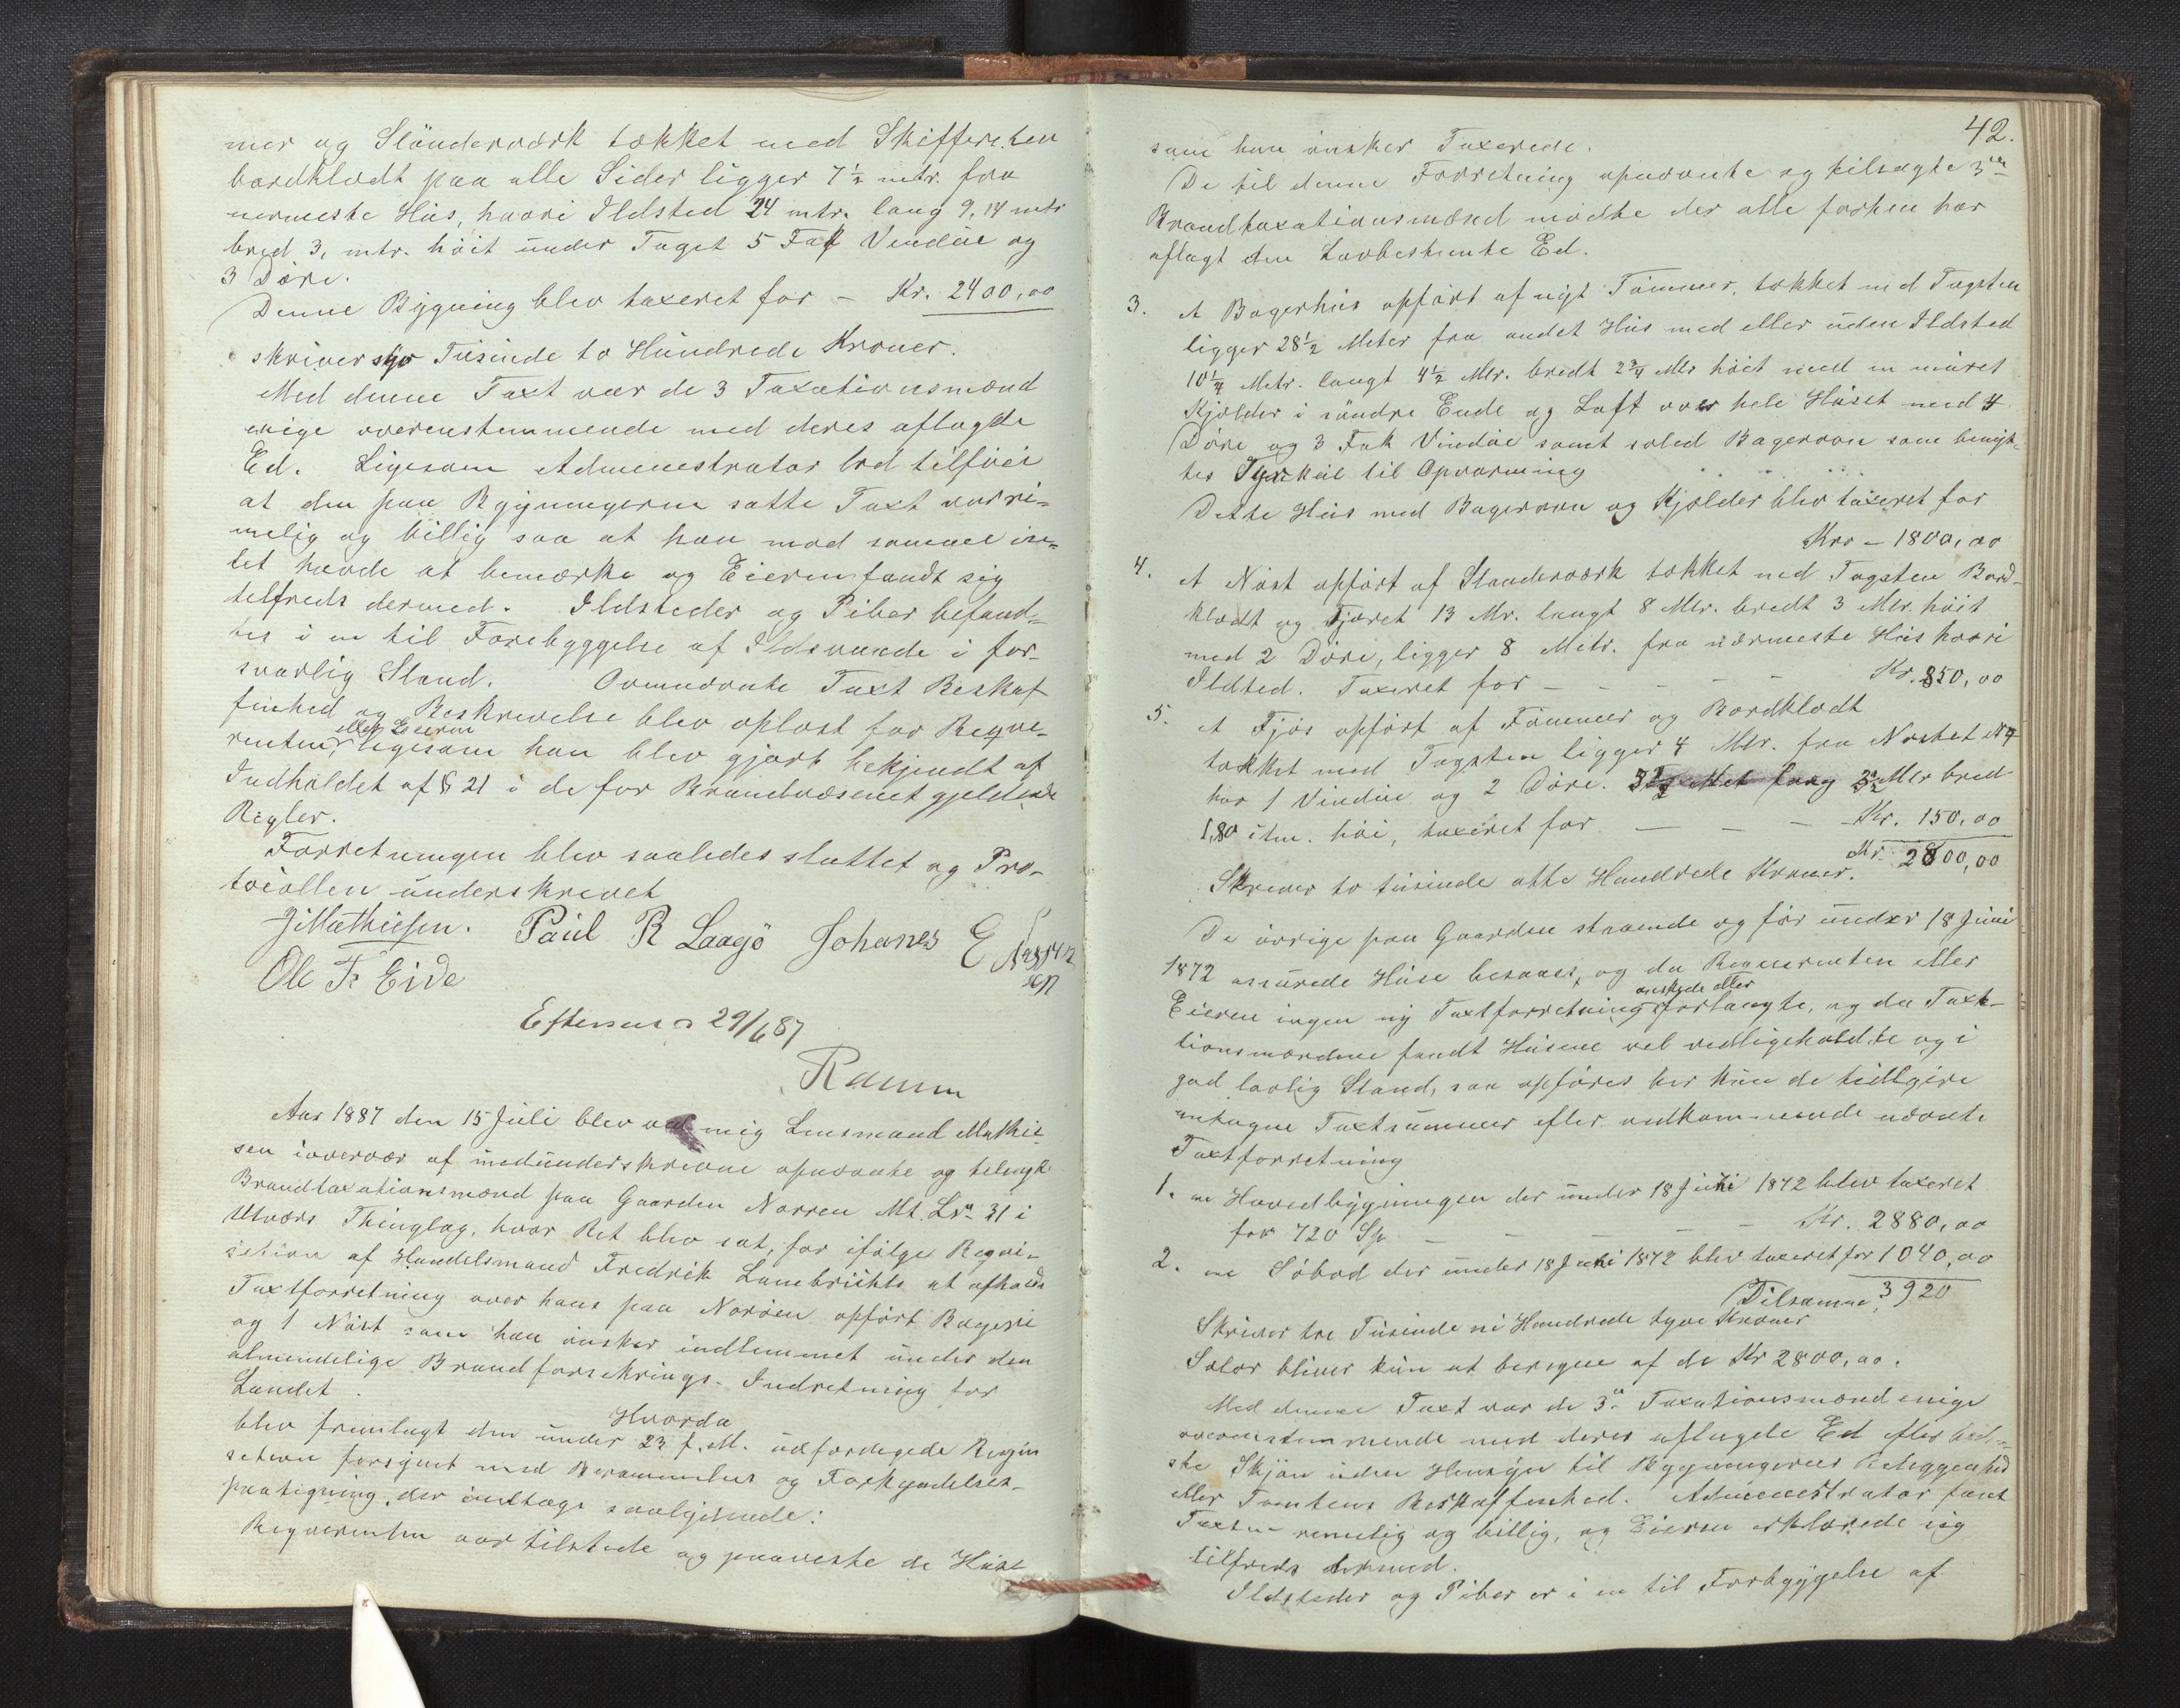 mer og Stönderværk tækket med Skiffersten
bordklædt paa alle Sider ligger 7½ mtr. fra
nermeste Hus, hvori Ildsted 24 mtr. lang 9,14 mtr
bred 3, mtr. höit under Taget 5 Fak Vindue og
3 Döre.
Denne Bygning blev taxeret for – Kr. 2400,00
skriver Tusinde to Hundrede Kroner.
Med denne Taxt var de 3 Taxationsmænd
enige overenstemmende med deres aflagde
Ed. Ligesom Admenestrator lod tilföie
at den paa Bygningerne satte Taxt var ri-
melig og billig saa at han mod samme in-
tet havde at bemærke og Eieren fandt sig
telfreds dermed. Ildsteder og Piber befand-
tes i en til Forebyggelse af Ildsvaade i for-
svarlig Stand. Ovennævnte Taxt Beskaf
finhed og Beskrivelse blev oplæst for Reqve-
renten, eller Eieren ligesom han blev gjort bekjendt af
Indholdet af § 21 i de for Brandvæsenet gjeldende
Regler.
Forretningen blev saaledes sluttet og Pro-
tocollen underskrevet
J Mathiesen. Paul R Laagö Johanes E
Ole Fr Eide
Efterseet 29/6 87
Ramm
Aar 1887 den 15 Juli blev ved mig Lensmand Mathie-
sen i overvær af medunderskrevne opnævnte og tilsagte
Brandtaxationsmænd paa Gaarden Norren Mt. Lr. 31 i
Utvær Thinglag, hvor Ret blev sat, for ifölge Reqvi-
sition af Handelsmand Fredrik Lambrichts at afholde
Taxtforretning over hans paa Norren opfört Bageri
og 1 Nöst som han önsker indlemmet under den
almindelige Brandforsikrings-Indretning for
Landet.
Hvorda
blev fremlagt den under 23 f. M. udfærdigede Reqvi
sition forsynet med Berammelses og Forkyndelses-
paategning, der indtages saalydende:
Reqverenten var tilstede og paaviste de Huse
42.
som han önsker Taxerede.
De til denne Forretning opnævnte og tilsagte 3de
Brandtaxationsmænd mödte der alle forhen har
aflagt den Lovbestemte Ed.
3. et Bagerhus opfört af nyt Tömmer, tækket med Tagsten
ligger 28½ Meter fra andet Hus med eller uden Ildsted
10¼ Metr. langt 4½ Mtr. bredt 2¾ Mtr höit med en muret
Kjelder i söndre Ende og Loft over hele Huset med 4
Döre og 3 Fak Vindue samt solid Bagerovn som benyt-
tes til Opvarming
Dette Hus med Bagerovn og Kjelder blev taxeret for
Kro – 1800,00
4. et Nöst opfört af Standerværk tækket med Tagsten Bord-
klædt og Tjæret 13 Mr. langt 8 Mtr. bredt 3 Mtr. höit
med 2 Döre, ligger 8 Metr. fra nærmeste Hus hvori
Ildsted. Taxeret for – – – – – Kr. 850,00
5. et Fjös opfört af Tömmer og Bordklædt
tækket med Tagsten ligger 4 Mtr. fra Nöstet No 4
har 1 Vindue og 2 Döre. 5½ Met lang 3½ Mtr bred
1,80 ctm. höi, taxeret for – – – Kr. 150,00
Kr. 2800,00
Skriver to tusinde otte Hundrede Kroner.
De övrige paa Gaarden staaende og för under 18 Juni
1872 assurede Huse besaaes, og da Reqverenten eller
Eieren ingen ny Taxtforretning önskede eller forlangte, og da Taxt-
tionsmændene fandt Husene vel vedligeholdte og i
god lovlig Stand, saa opföres her kun de tidligere
antagne Taxtsummer efter vedkommende nævnte
Taxtforretning
1. en Hovedbygningen der under 18 Juni 1872 blev taxeret
for 720 Sp – – – – Kr. 2880,00
2. en Söbod der under 18 Juni 1872 blev taxeret for 1040,00
Tilsamme 3920
Skriver tre Tusinde ni Hundrede tyve Kroner
Salær bliver kun at beregne af de Kr 2800,00.
Med denne Taxt var de 3de Taxationsmænd enige
overenstemmende med deres aflagde Ed efter bed-
ste Skjön uden Hensyn til Bygningernes Beliggenhed
eller Tomtens Beskaffenhed. Admenestrator fandt
Taxten remelig og billig, og Eieren erklærede sig
tilfreds dermed.
Ildsteder og Piber er i en til Forbyggelse af